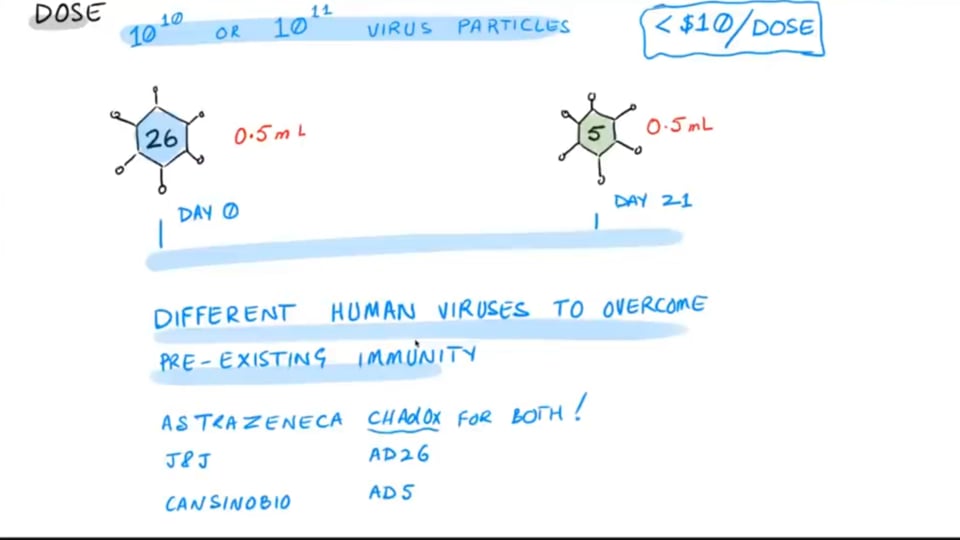 DOSE
10^10 OR 10^11 VIRUS PARTICLES
< $10/DOSE
26
0.5mL
5
0.5mL
DAY 0
DAY 21
DIFFERENT HUMAN VIRUSES TO OVERCOME
PRE-EXISTING IMMUNITY
ASTRAZENECA CHAdOx FOR BOTH!
J&J AD26
CANSINOBIO AD5